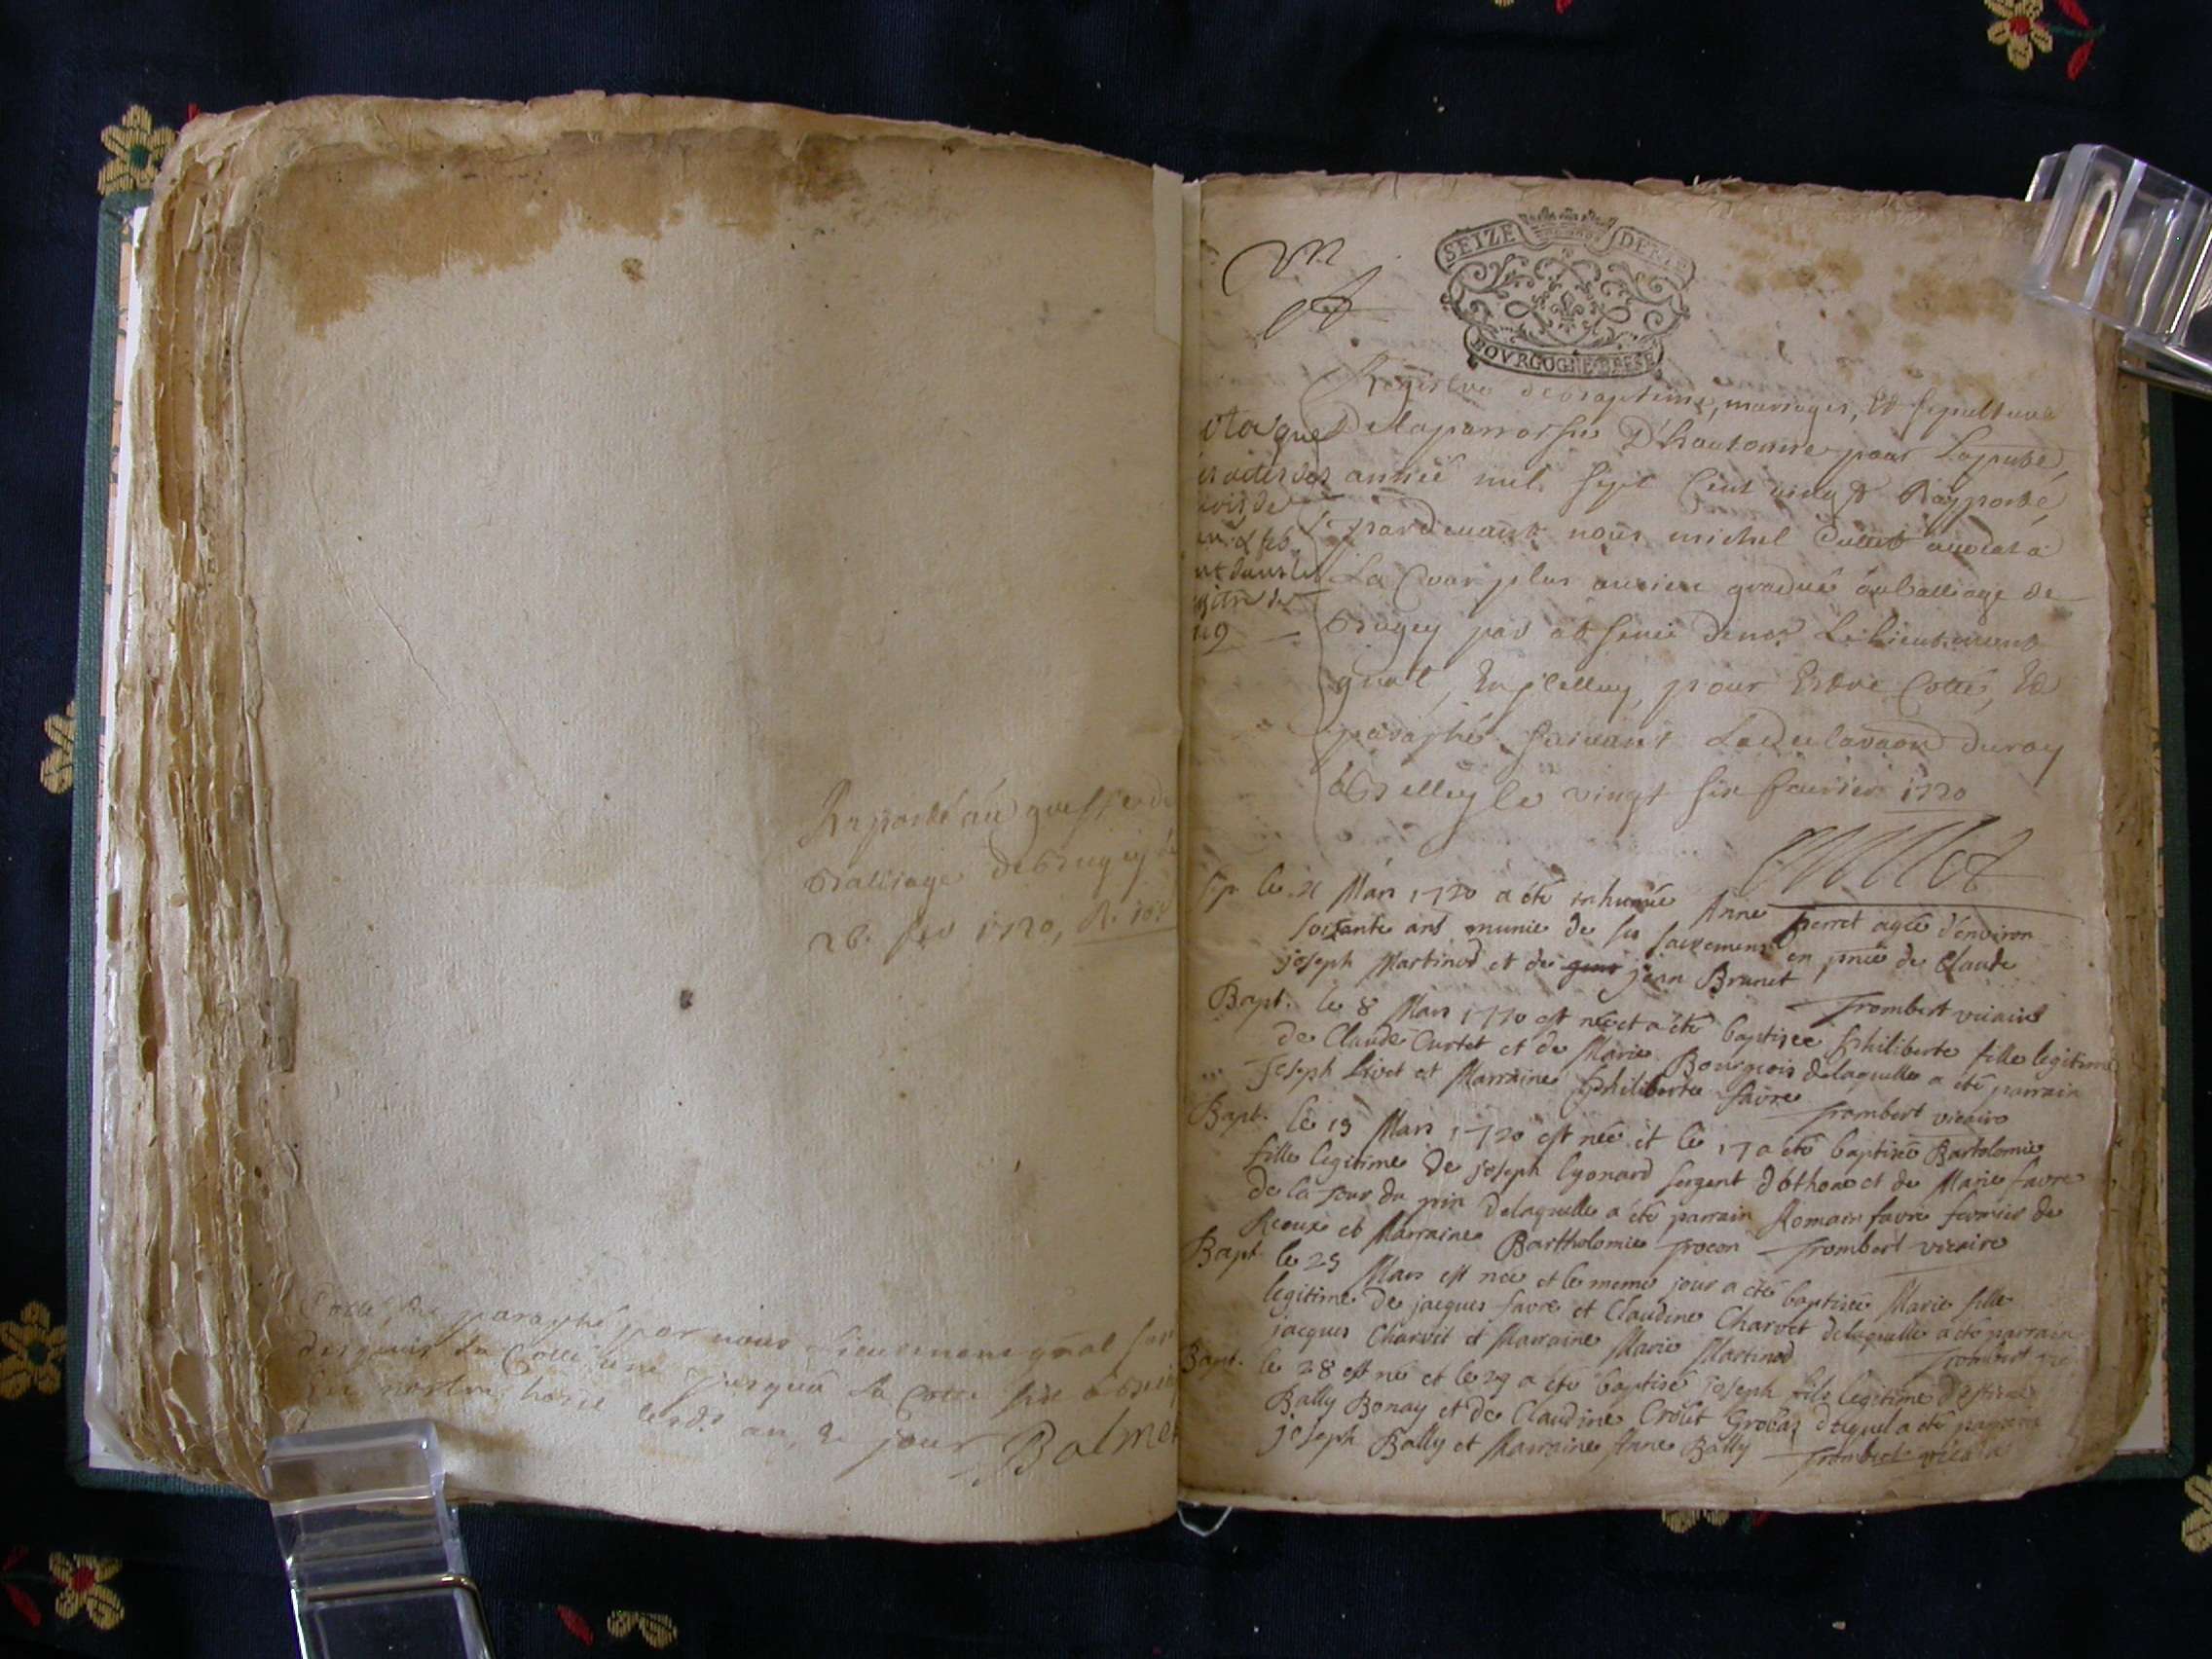 Rapporté au greffe du
Balliage de Bugey
26. fev 1720,
Cotté, Et paraphé par nous Lieutenent gnal
depuis la Cotte une jusqu'a la Cotte six
En nostre hotel an, & jour Balmet
SEIZE DEN
BOVRGOGNE BRESSE
Registre de baptime, mariages, Et sepulture
De laparroisse D'hautonne pour Lapnte
année mil sept Cent vingt Rapporté
pardevant nous michel Cullet avocat a
La Cour plus ancien gradué au balliage de
Bugey par absence Lieutenent
gnal, En pour Estre Cotté, Et
paraphé suivant La declaraon du roy
a Belley le vingt six fevrier 1720
Cullet
Sep. le Mars 1720 a été inhumée Anne perret agée d'environ
soixante ans munie de ses sacremens en pnce de Claude
joseph Martinod et de jean Brunet
Trombert vicaire
Bapt. le 8 Mars 1720 est née et a été baptisée philiberte fille legitime
de Claude Curtet et de Marie Bourgeois delaquelle a été parrain
Joseph Livet et Marraine philiberte favre
Trombert vicaire
Bapt. le 15 Mars 1720 est née et le 17 a été baptisée Bartolomie
fille legitime de joseph lyonard sergent d'othone et de Marie favre
de la Tour du pin delaquelle a été parrain Romain favre fermier de
et Marraine Bartholomie Trombert vicaire
Bapt. le 25 Mars est née et le meme jour a été baptisée Marie fille
legitime de jacques favre et Claudine Charvet delaquelle a été parrain
jacques Charvet et Marraine Marie Martinod
Trombert vic
Bapt. le 28 est né et le 29 a été baptisé joseph fils legitime
Bally Bonay et de Claudine duquel a été parrain
joseph Bally et Marraine Anne Bally Trombert vicaire